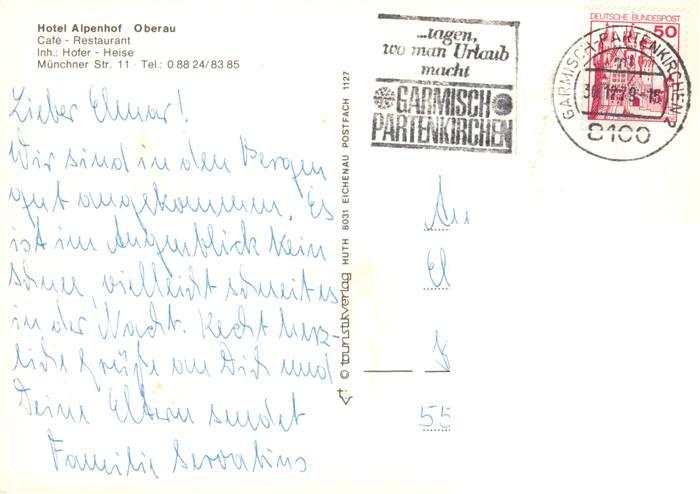 Hotel Alpenhof · Oberau
Café - Restaurant
Inh.: Hofer - Heise
Münchner Str. 11 · Tel.: 0 88 24/83 85
Lieber Elmar!
Wir sind in den Bergen
gut angekommen. Es
ist im Augenblick kein
Schnee, vielleicht schneit es
in der Nacht. Recht herz-
liche Grüße an Dich und
Deine Eltern sendet
Familie Servatius
© touristikverlag HUTH 8031 EICHENAU POSTFACH 1127
...tagen,
wo man Urlaub
macht
GARMISCH
PARTENKIRCHEN
DEUTSCHE BUNDESPOST
50
GARMISCH-PARTENKIRCHEN 2
30.12.79-15
8100
An
El
55